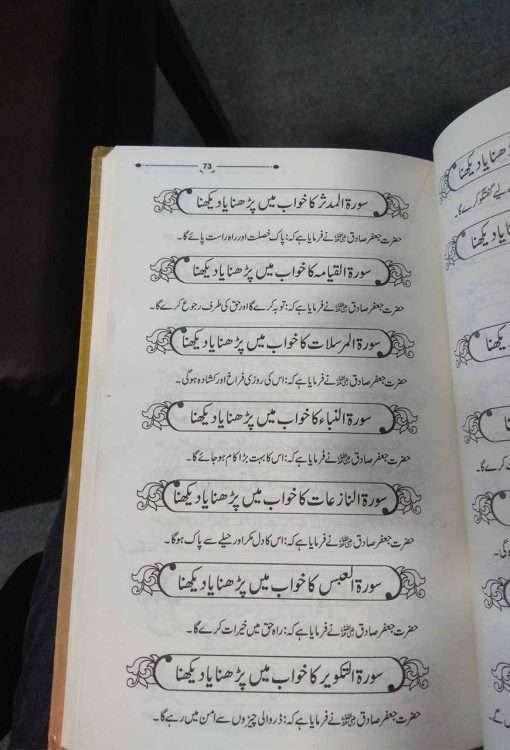 73
سورۃ المدثر کا خواب میں پڑھنا یا دیکھنا
حضرت جعفر صادق نے فرمایا ہے کہ: پاک خصلت اور راہ راست پائے گا۔
سورۃ القیامہ کا خواب میں پڑھنا یا دیکھنا
حضرت جعفر صادق نے فرمایا ہے کہ: توبہ کرے گا اور حق کی طرف رجوع کرے گا۔
سورۃ المرسلات کا خواب میں پڑھنا یا دیکھنا
حضرت جعفر صادق نے فرمایا ہے کہ: اس کی روزی فراخ اور کشادہ ہوگی۔
سورۃ النباء کا خواب میں پڑھنا یا دیکھنا
حضرت جعفر صادق نے فرمایا ہے کہ: اس کا بہت بڑا کام ہو جائے گا۔
سورۃ النازعات کا خواب میں پڑھنا یا دیکھنا
حضرت جعفر صادق نے فرمایا ہے کہ: اس کا دل مکر اور حیلے سے پاک ہوگا۔
سورۃ العبس کا خواب میں پڑھنا یا دیکھنا
حضرت جعفر صادق نے فرمایا ہے کہ: راہ حق میں خیرات کرے گا۔
سورۃ التکویر کا خواب میں پڑھنا یا دیکھنا
حضرت جعفر صادق نے فرمایا ہے کہ: ڈر والی چیزوں سے امن میں رہے گا۔
پڑھنا یا دیکھنا
لیے گفتگو کرے گا۔
پڑھنا یا دیکھنا
دیکھنا
یا دیکھنا
کرے گا۔
دیکھنا
ہوگی۔